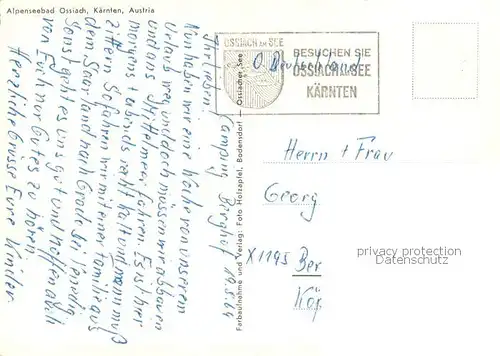 Alpenseebad Ossiach, Kärnten, Austria
Camping Berghof 19.5.64
Ihr Lieben.
Nun haben wir eine Woche von unserem
Urlaub weg und doch müssen wir abbauen
und ans Mittelmeer fahren. Es ist hier
morgens + abends recht kalt und man muß
zittern. So fahren wir mit einer Familie aus
dem Saarland nach Grado bei Venedig.
Sonst geht es uns gut und hoffen auch
von Euch nur Gutes zu hören.
Herzliche Grüsse Eure Kinder
Farbaufnahme und Verlag: Foto Holzapfel, Bodensdorf — Ossiacher See
OSSIACH AM SEE
BESUCHEN SIE
OSSIACH AM SEE
KÄRNTEN
Deutschland
Herrn + Frau
Georg
X 1195 Ber
Köp
privacy protection
Datenschutz